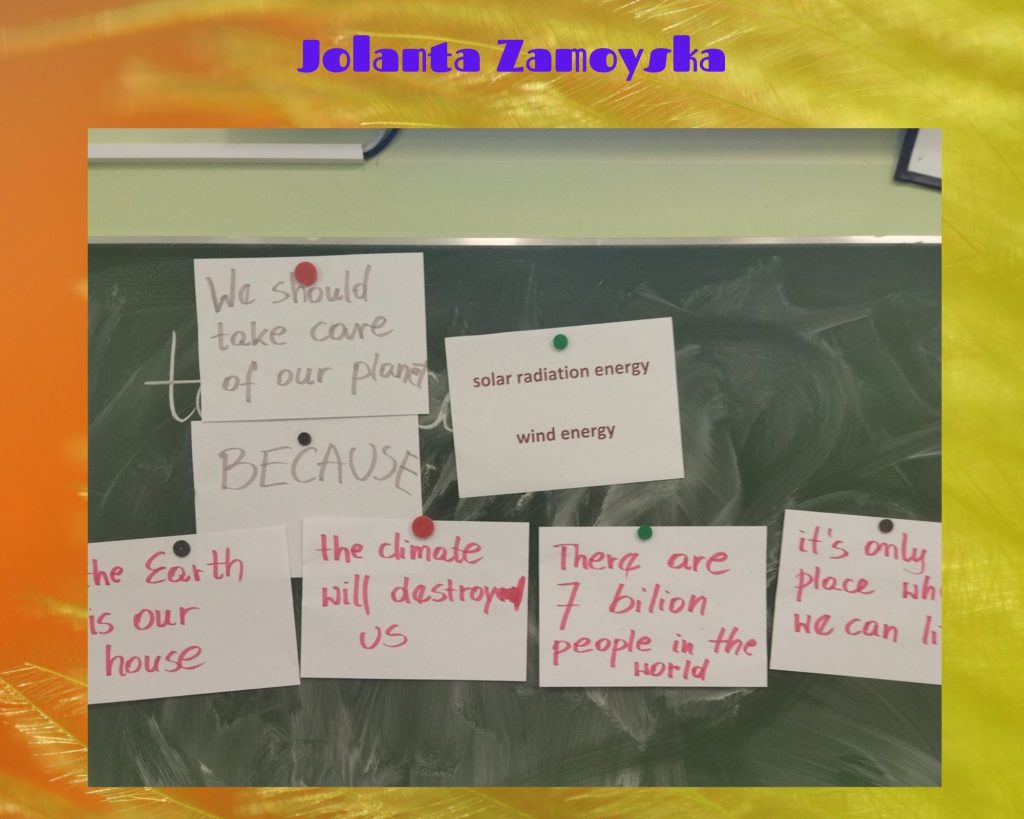 Jolanta Zamoyska
We should
take care
of our planet
solar radiation energy
wind energy
BECAUSE
he Earth
is our
house
the climate
will destroy
us
There are
7 bilion
people in the
world
it's only
place wh
we can li